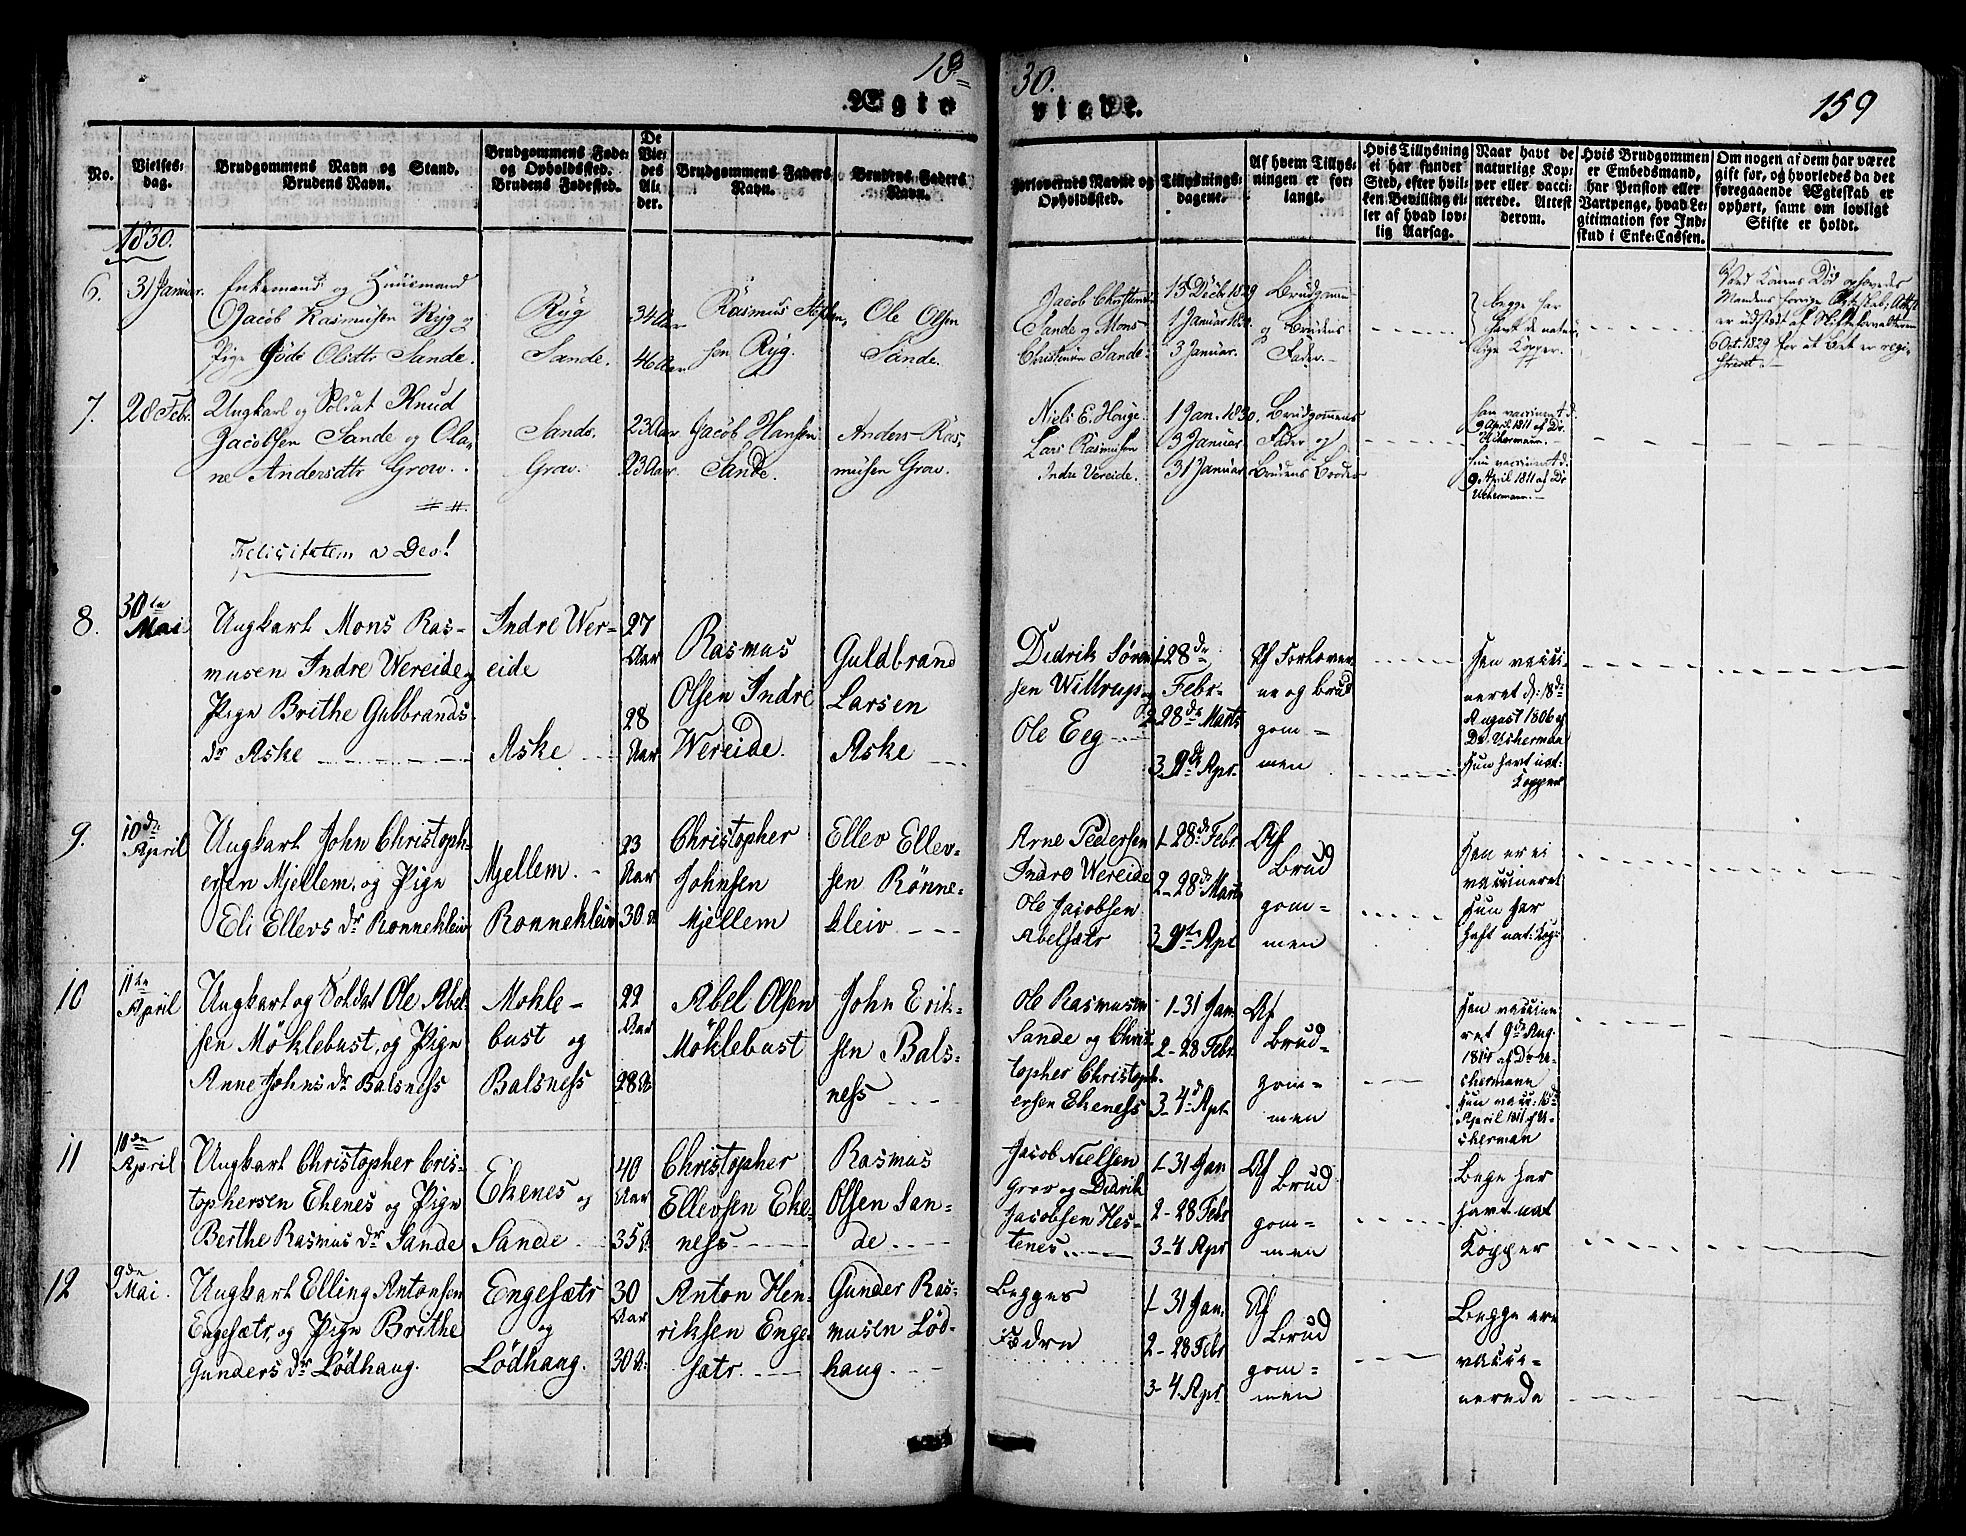 18
30.
159
Ægte
viede.
No.
Vielses-
dag.
Brudgommens Navn og Stand.
Brudens Navn.
Brudgommens Føde-
og Opholdssted.
Brudens Fødested.
De
Vie-
des
Al-
der.
Brudgommens Faders
Navn.
Brudens Faders
Navn.
Forlovernes Navne og
Opholdssted.
Tillysnings-
dagene.
Af hvem Tillys-
ningen er for-
langt.
Hvis Tillysning
ei har fundet
Sted, efter hvil-
ken Bevilling el-
ler af hvad lov-
lig Aarsag.
Naar havt de
naturlige Kop-
per eller vacci-
nerede. Attest
derom.
Hvis Brudgommen
er Embedsmand,
har Pension eller
Vartpenge, hvad Le-
gitimation for Ind-
skud i Enke-Cassen.
Om nogen af dem har været
gift før, og hvorledes da det
foregaaende Ægteskab er
ophørt, samt om lovligt
Skifte er holdt.
1830.
6.
31 Januar.
Enkemand og Huusmand
Jacob Rasmusen Ryg og
Pige Olidtr Sande.
Ryg
Sande.
34 Aar
46 Aar
Rasmus Steffen-
sen Ryg.
Ole Olsen
Sande.
Jacob Christens:
Sande og Mons
Christensen Sande
13 Decbr 1829
1 Januar 1830.
3 Januar.
Brudgommen
og Brudens
Fader.
begge har
havt de natur-
lige Kopper.
Ved Konens Død ophævedes
Mandens forrige Ægteskab, Attest
er udstedt af Skifteforvalteren
6 Oct. 1829 for at Boet er regi-
streret.
7.
28 Febr.
Ungkarl og Soldat Knud
Jacobsen Sande og Ola-
ne Andersdtr Grov.
Sande.
Grov.
23 Aar
23 Aar
Jacob Hansen
Sande.
Anders Ras-
musen Grov.
Niels E. Houge
Lars Rasmusen
Indre Vereide.
1 Jan. 1830.
3 Januar
31 Januar
Brudgommens
Fader og
Brudens Broder
han vaccineret d.
9 April 1811 af Dr.
Uchermann.
hun vaccineret d.
9 April 1811 af Dr
Uchermann.
Felicitatem a Deo!
8.
30te
Mai
Ungkarl Mons Ras-
musen Indre Wereide og
Pige Brithe Gulbrands
dr Aske
Indre Wer-
eide
Aske
27
Aar
28
Aar
Rasmus
Olsen Indre
Wereide.
Guldbrand
Larsen
Aske
Didrik Søren
sen Wiltrup og
Ole Eeg
1 28de
Febr.
2 28de Marts
3 9de Apr.
Af Forlover
ne og brud
gom-
men
Han vacci-
neret d: 18de
August 1806 af
Dr. Ucherman
Hun havt nat:
Kopper
9.
10de
April
Ungkarl John Christoph-
ersen Mjellem, og Pige
Eli Ellevs dr Rønnekleiv
Mjellem.
Rønnekleiv
23
Aar
30 A
Christopher
Johnsen
Mjellem
Ellev Ellev-
sen Rønne-
kleiv
Arne Pedersen
Indre Wereide
Ole Jacobsen
Abelsætr
1 28de Febr
2 - 28de Marts
3 9de Apr
Af
Brud
gom-
men
Han er ei
vaccineret
Hun har
haft nat: Kop:
10
11te
April
Ungkarl og Soldat Ole Abel-
sen Møklebust, og Pige
Anne Johns dr Balsness
Mokle-
bust og
Balsness
22
Aar
28 A
Abel Olsen
Møklebust
John Erik-
sen Bals-
ness
Ole Rasmusen
Sande og Chris
topher Christoph-
ersen Ekeness
1 - 31 Jan
2 - 28 Febr
3 - 4de Apr.
Af
Brud-
gom-
men
Han vaccine
ret 9de Aug.
af Dr U-
chermann
Hun vacc: 10de
April 1811 af U-
cherman
11
10de
April
Ungkarl Christopher Cris-
tophersen Ekenes og Pige
Berthe Rasmus dr Sande
Ekenes og
Sande
40
Aar
35 A
Christopher
Ellevsen Eke-
ness
Rasmus
Olsen San-
de.
Jacob Nielsen
Grov og Didrik
Jacobsen Hes-
tenes
1 - 31 Jan
2 - 28 Febr
3 - 4 Apr
Af Brud
gom-
men
Bege har
havt nat
Kopper
12
9de
Mai.
Ungkarl Elling Antonsen
Engesætr, og Pige Brithe
Gunders dr Lødhaug.
Engesætr
og
Lødhaug.
30
Aar
30 A:
Anton Hen-
riksen Enge-
sætr.
Gunder Ras-
musen Lød-
haug
Begges
Fædre
1 31 Jan.
2 - 28 Febr
3 - 4 Apr.
Af
Brud
gom-
men
Begge ere
vacci-
nerede